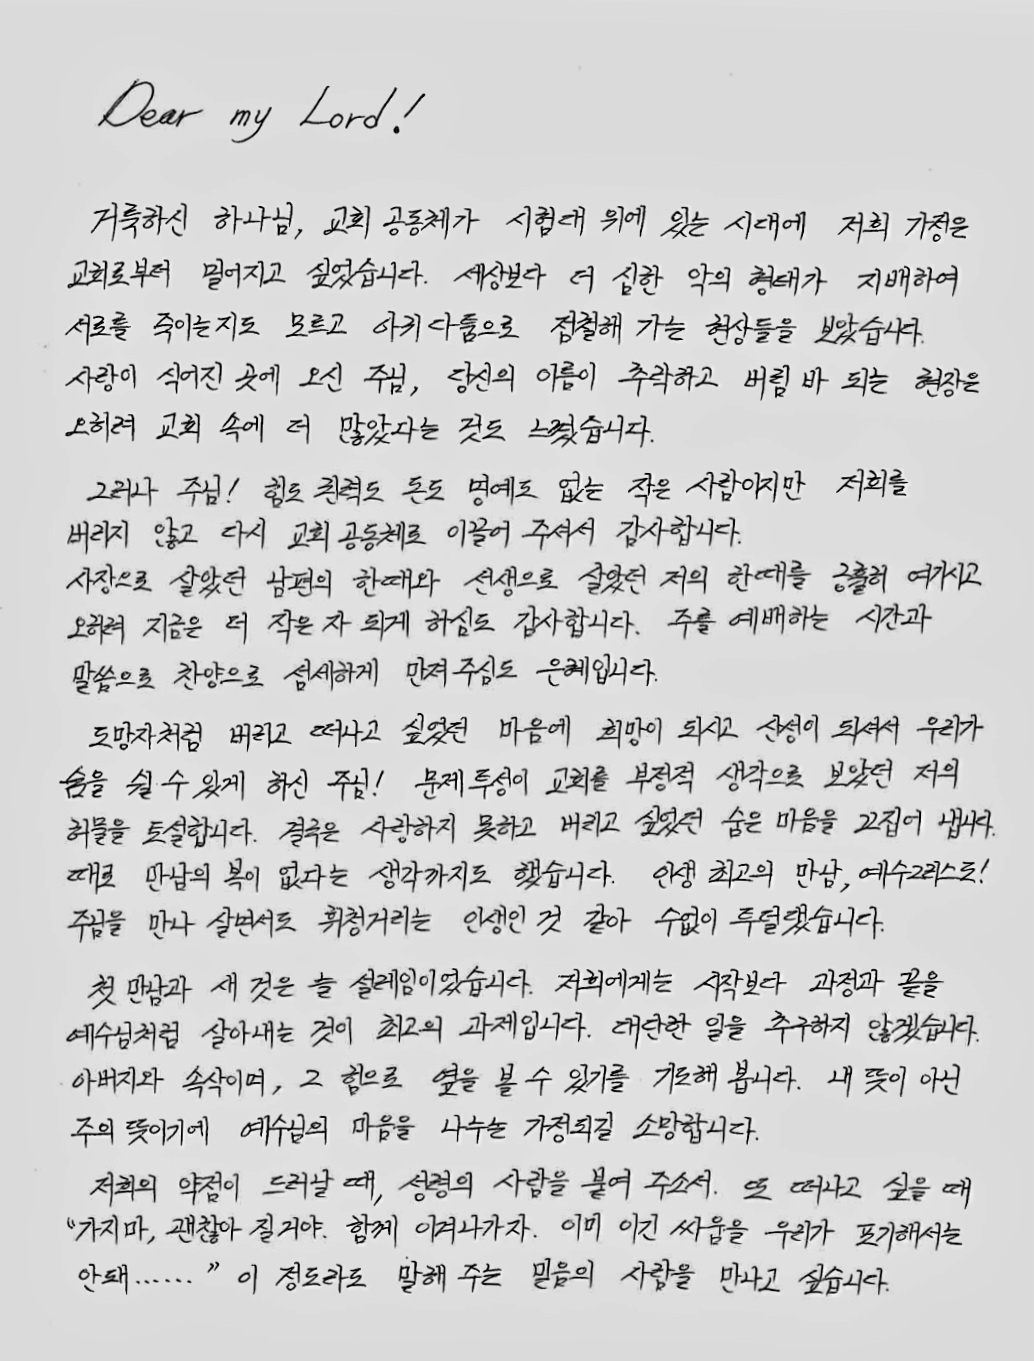 Dear my Lord!
거룩하신 하나님, 교회 공동체가 시험대 위에 있는 시대에 저희 가정은
교회로부터 멀어지고 싶었습니다. 세상보다 더 심한 악의 형태가 지배하여
서로를 죽이는지도 모르고 아귀다툼으로 점철해 가는 현상들을 보았습니다.
사랑이 식어진 곳에 오신 주님, 당신의 이름이 추락하고 버림 바 되는 현장은
오히려 교회 속에 더 많았다는 것도 느꼈습니다.
그러나 주님! 힘도 권력도 돈도 명예도 없는 작은 사람이지만 저희를
버리지 않고 다시 교회 공동체로 이끌어 주셔서 감사합니다.
사장으로 살았던 남편의 한때와 선생으로 살았던 저의 한때를 긍휼히 여기시고
오히려 지금은 더 작은 자 되게 하심도 감사합니다. 주를 예배하는 시간과
말씀으로 찬양으로 섬세하게 만져 주심도 은혜입니다.
도망자처럼 버리고 떠나고 싶었던 마음에 희망이 되시고 산성이 되셔서 우리가
숨을 쉴 수 있게 하신 주님! 문제 투성이 교회를 부정적 생각으로 보았던 저의
허물을 토설합니다. 결국은 사랑하지 못하고 버리고 싶었던 숨은 마음을 끄집어 냅니다.
때로 만남의 복이 없다는 생각까지도 했습니다. 인생 최고의 만남, 예수그리스도!
주님을 만나 살면서도 휘청거리는 인생인 것 같아 수없이 투덜댔습니다.
첫 만남과 새 것은 늘 설레임이었습니다. 저희에게는 시작보다 과정과 끝을
예수님처럼 살아내는 것이 최고의 과제입니다. 대단한 일을 추구하지 않겠습니다.
아버지와 속삭이며, 그 힘으로 옆을 볼 수 있기를 기도해 봅니다. 내 뜻이 아닌
주의 뜻이기에 예수님의 마음을 나누는 가정되길 소망합니다.
저희의 약점이 드러날 때, 성령의 사람을 붙여 주소서. 또 떠나고 싶을 때
“가지마, 괜찮아 질거야. 함께 이겨나가자. 이미 이긴 싸움을 우리가 포기해서는
안돼......” 이 정도라도 말해 주는 믿음의 사람을 만나고 싶습니다.